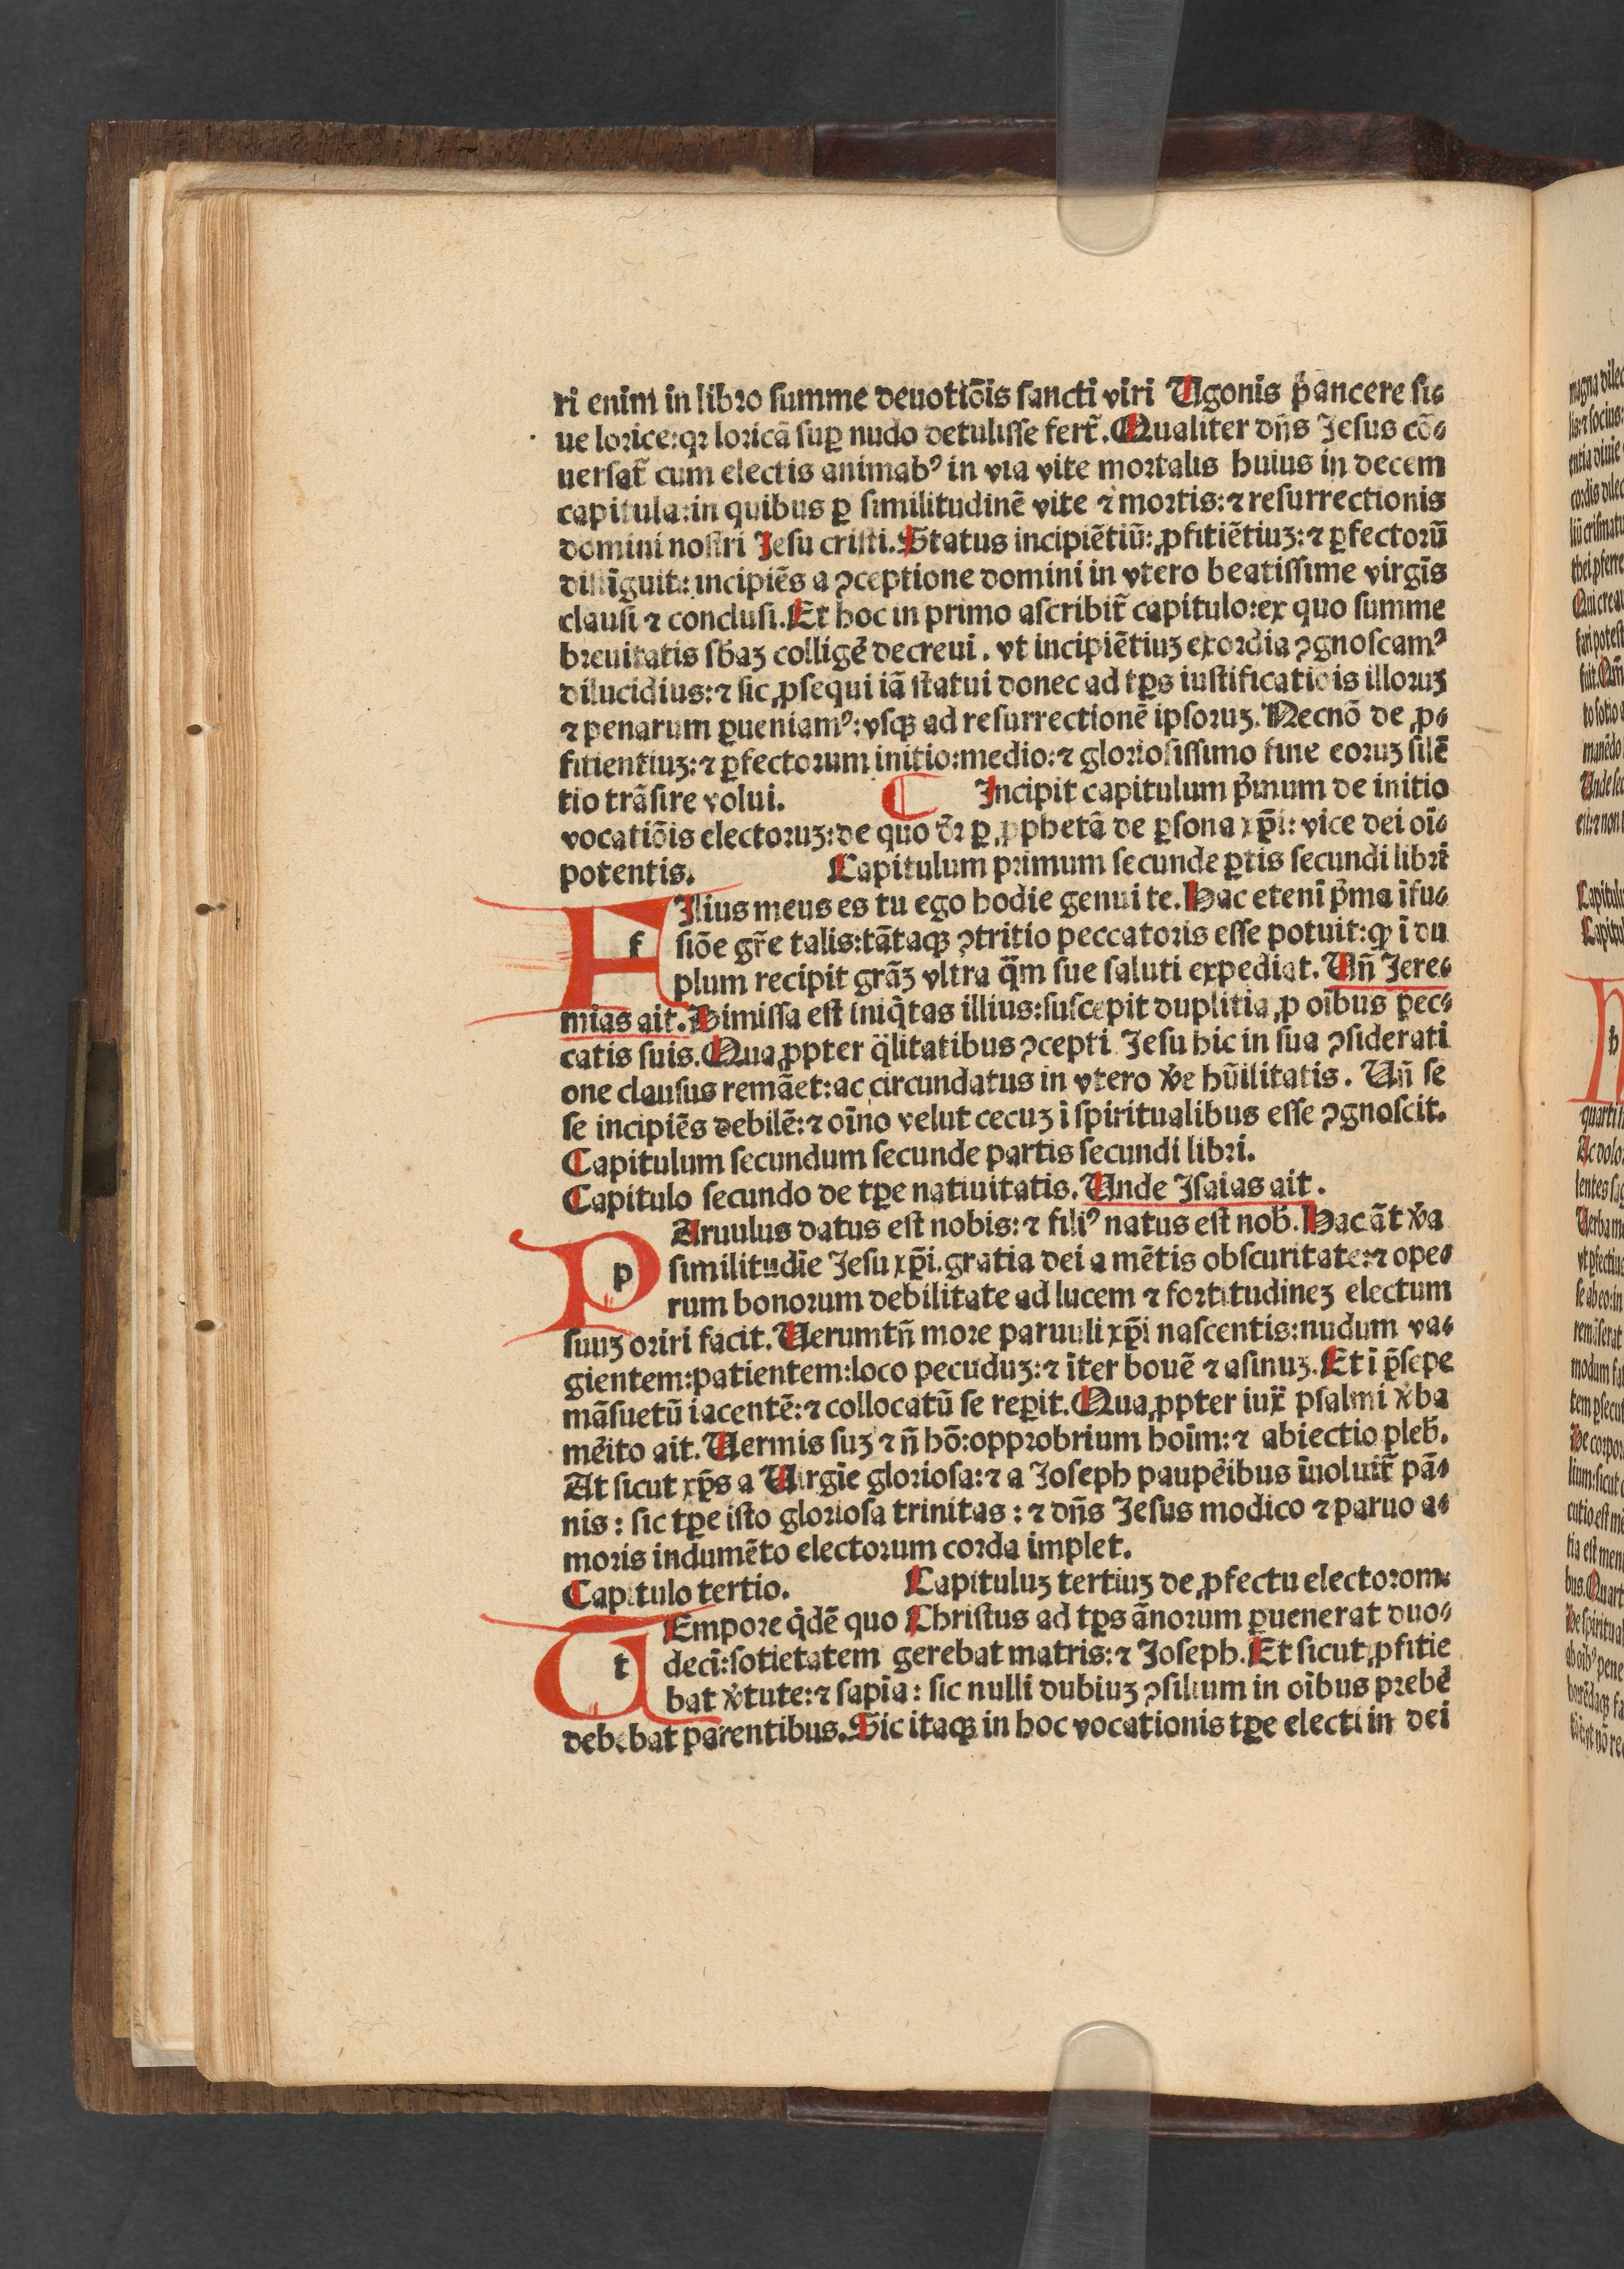 ri enim in libro summe deuotiõis sancti viri Ugonis p̃ancere si⸗
ue lorice:qꝛ loricã suꝑ nudo detulisse fert̃. Qualiter dñs Jesus cõ⸗
uersat̃ cum electis animabꝰ in via vite mortalis huius in decem
capitula:in quibus ꝑ similitudinẽ vite ⁊ mortis:⁊ resurrectionis
domini nostri Jesu cristi. Status incipiẽtiũ:ꝓfitiẽtiuʒ:⁊ ꝑfectorũ
distĩguit̃:incipiẽs a ꝯceptione domini in vtero beatissime virgĩs
clausi ⁊ conclusi. Et hoc in primo ascribit̃ capitulo:ex quo summe
breuitatis sb̃aʒ colligẽ decreui. vt incipiẽtiuʒ exordia ꝯgnoscamꝰ
dilucidius:⁊ sic ꝓsequi iã statui donec ad tꝑs iustificatiõis illoruʒ
⁊ penarum ꝑueniamꝰ:vsqꝫ ad resurrectionẽ ipsoruʒ. Necnõ de ꝓ⸗
fitientiuʒ:⁊ ꝑfectorum initio:medio:⁊ gloriosissimo fine eoruʒ silẽ
tio trãsire volui. C Incipit capitulum p̃mum de initio
vocatiõis electoruʒ:de quo dr̃ ꝑ ꝓphetã de ꝑsona xp̃i:vice dei oĩ⸗
potentis. Capitulum primum secunde ꝑtis secundi libri
FIlius meus es tu ego hodie genui te. Hac etenĩ p̃ma ĩfu⸗
f siõe gr̃e talis:tãtaqꝫ ꝯtritio peccatoris esse potuit:ꝙ ĩ du
plum recipit grãʒ vltra q̃m sue saluti expediat. Uñ Jere⸗
mias ait. Dimissa est iniq̃tas illius:suscepit duplitia ꝓ oĩbus pec⸗
catis suis. Quaꝓpter q̃litatibus ꝯcepti Jesu hic in sua ꝯsiderati
one clausus remãet:ac circundatus in vtero ṽe hũilitatis. Uñ se
se incipiẽs debilẽ:⁊ oĩno velut cecuʒ ĩ spiritualibus esse ꝯgnoscit.
Capitulum secundum secunde partis secundi libri.
Capitulo secundo de tꝑe natiuitatis. Unde Isaias ait.
PAruulus datus est nobis:⁊ filiꝰ natus est nob̃. Hac ãt ṽa
p similitudĩe Jesu xp̃i.gratia dei a mẽtis obscuritate:⁊ ope⸗
rum bonorum debilitate ad lucem ⁊ fortitudineʒ electum
suuʒ oriri facit. Uerumtñ more paruuli xp̃i nascentis:nudum va⸗
gientem:patientem:loco pecuduʒ:⁊ ĩter bouẽ ⁊ asinuʒ. Et ĩ p̃sepe
mãsuetũ iacentẽ:⁊ collocatũ se reperit. Quaꝓpter iux̃ psalmi ṽba
mẽito ait. Uermis suʒ ⁊ ñ hõ:opprobrium hoĩm:⁊ abiectio pleb̃.
At sicut xp̃s a Uirgĩe gloriosa:⁊ a Joseph paupẽibus ĩuoluit̃ pã⸗
nis: sic tꝑe isto gloriosa trinitas:⁊ dñs Jesus modico ⁊ paruo a⸗
moris indumẽto electorum corda implet.
Capitulo tertio. Capituluʒ tertiuʒ de ꝓfectu electorom:
TEmpore q̃dẽ quo Christus ad tꝑs ãnorum ꝑuenerat duo⸗
t decĩ:sotietatem gerebat matris:⁊ Joseph. Et sicut ꝓfitie
bat ṽtute:⁊ sapĩa: sic nulli dubiuʒ ꝯsilium in oĩbus prebẽ
debebat parentibus. Sic itaqꝫ in hoc vocationis tꝑe electi in dei